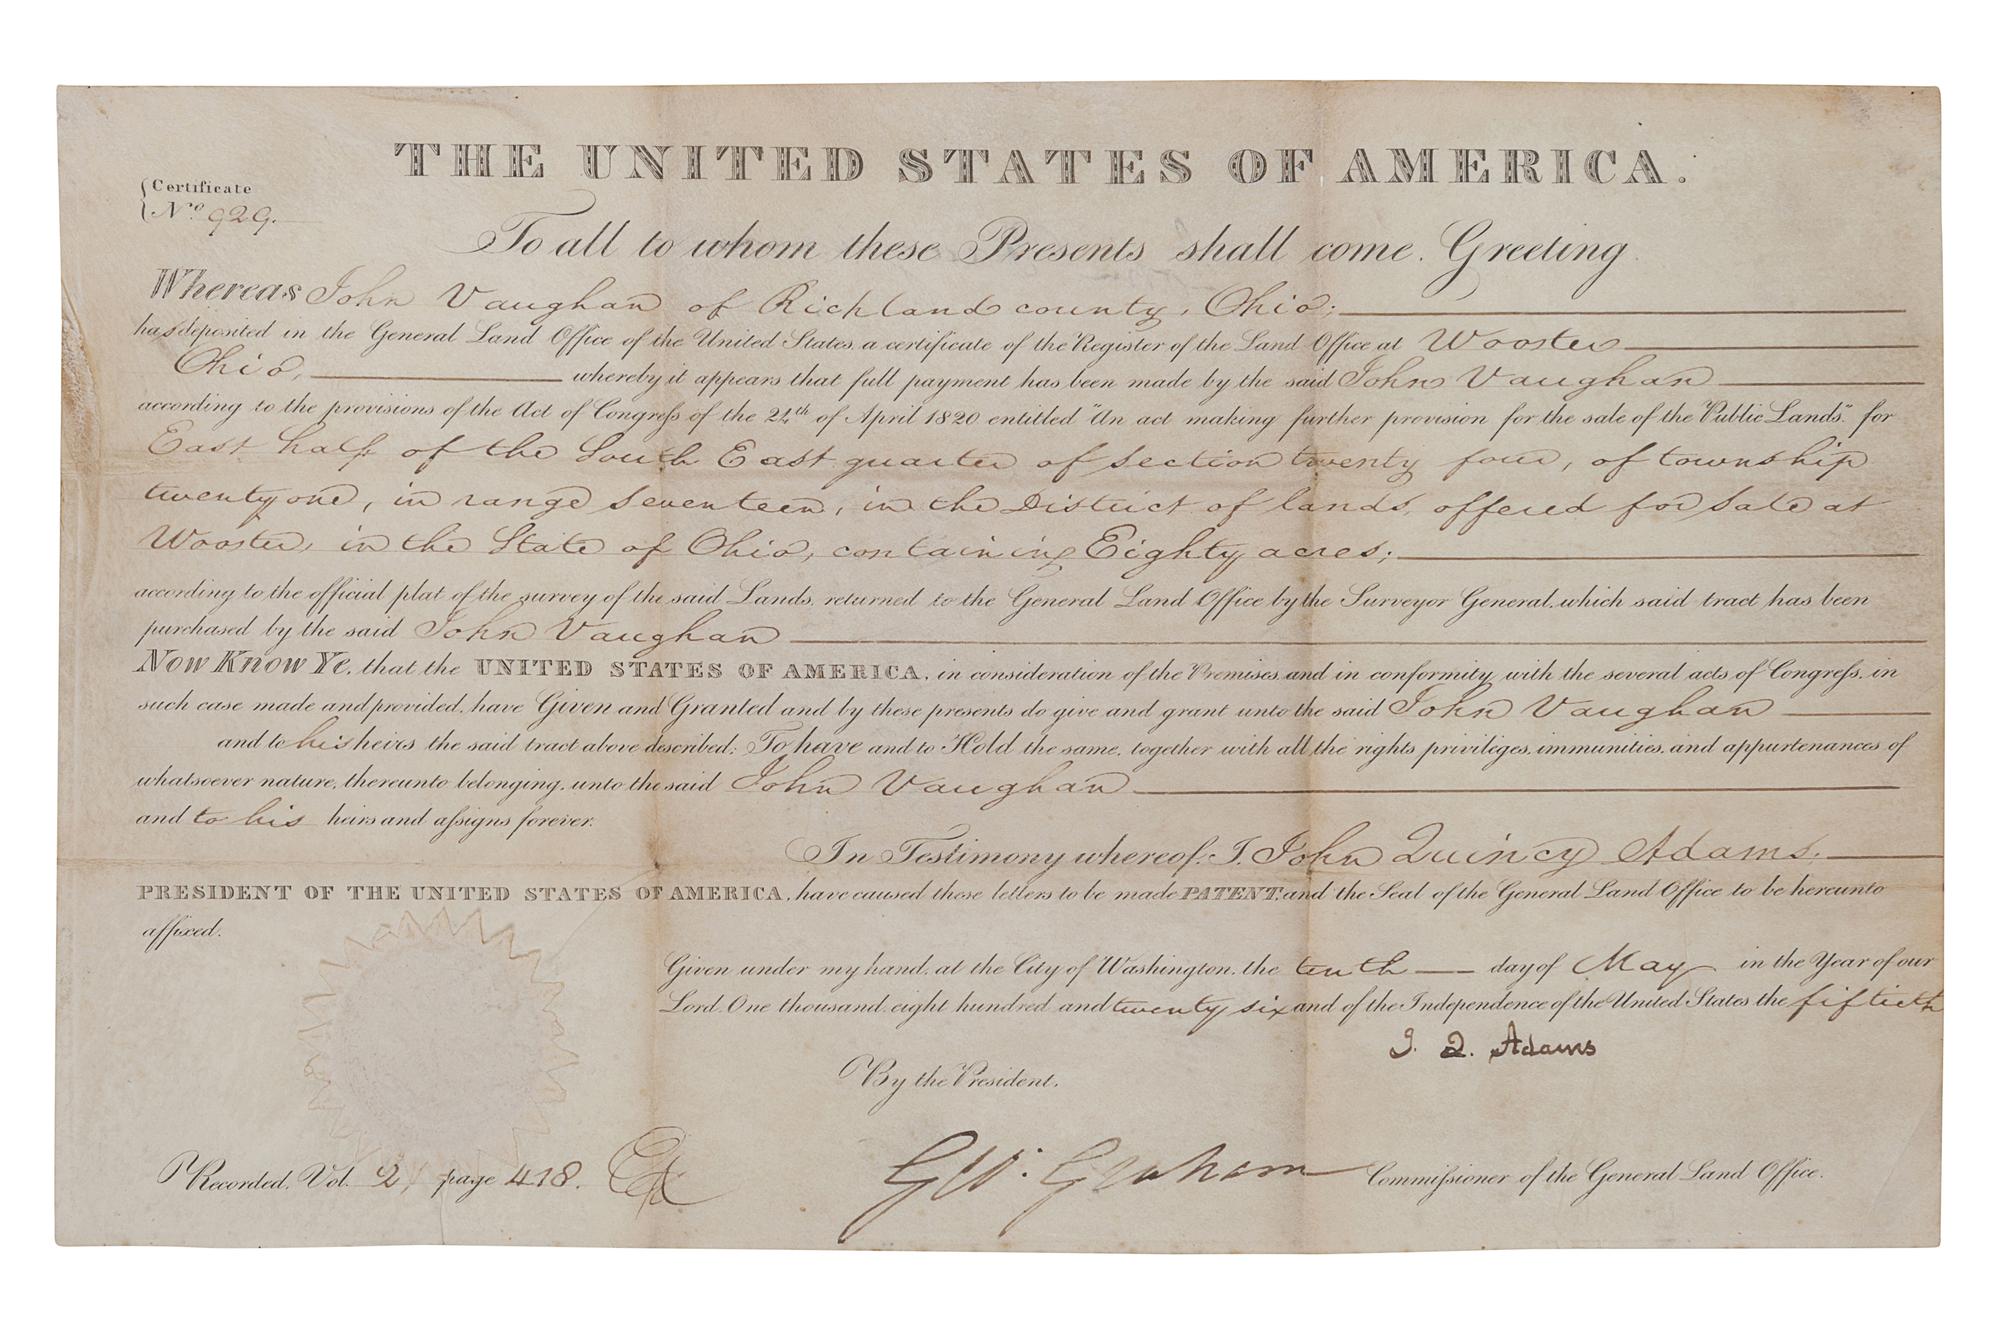 THE UNITED STATES OF AMERICA.
Certificate
No. 929.
To all to whom these Presents shall come, Greeting.
Whereas John Vaughan of Richland county, Ohio;
has deposited in the General Land Office of the United States, a certificate of the Register of the Land Office at Wooster
Ohio, whereby it appears that full payment has been made by the said John Vaughan
according to the provisions of the Act of Congress of the 24th of April 1820, entitled "An act making further provision for the sale of the Public Lands" for
East half of the South East quarter of section twenty four, of township
twenty one, in range seventeen, in the District of lands offered for sale at
Wooster, in the State of Ohio, containing Eighty acres;
according to the official plat of the survey of the said Lands, returned to the General Land Office by the Surveyor General, which said tract has been
purchased by the said John Vaughan
Now Know Ye, that the UNITED STATES OF AMERICA, in consideration of the Premises, and in conformity with the several acts of Congress, in
such case made and provided, have Given and Granted and by these presents do give and grant unto the said John Vaughan
and to his heirs the said tract above described: To have and to Hold the same, together with all the rights privileges, immunities, and appurtenances of
whatsoever nature, thereunto belonging, unto the said John Vaughan
and to his heirs and assigns forever.
In Testimony whereof, I, John Quincy Adams,
PRESIDENT OF THE UNITED STATES OF AMERICA, have caused these letters to be made PATENT, and the Seal of the General Land Office to be hereunto
affixed.
Given under my hand, at the City of Washington, the tenth day of May in the Year of our
Lord, One thousand, eight hundred and twenty six and of the Independence of the United States the fiftieth
J. Q. Adams
By the President,
GW. Graham Commissioner of the General Land Office.
Recorded, Vol. 2, page 418.